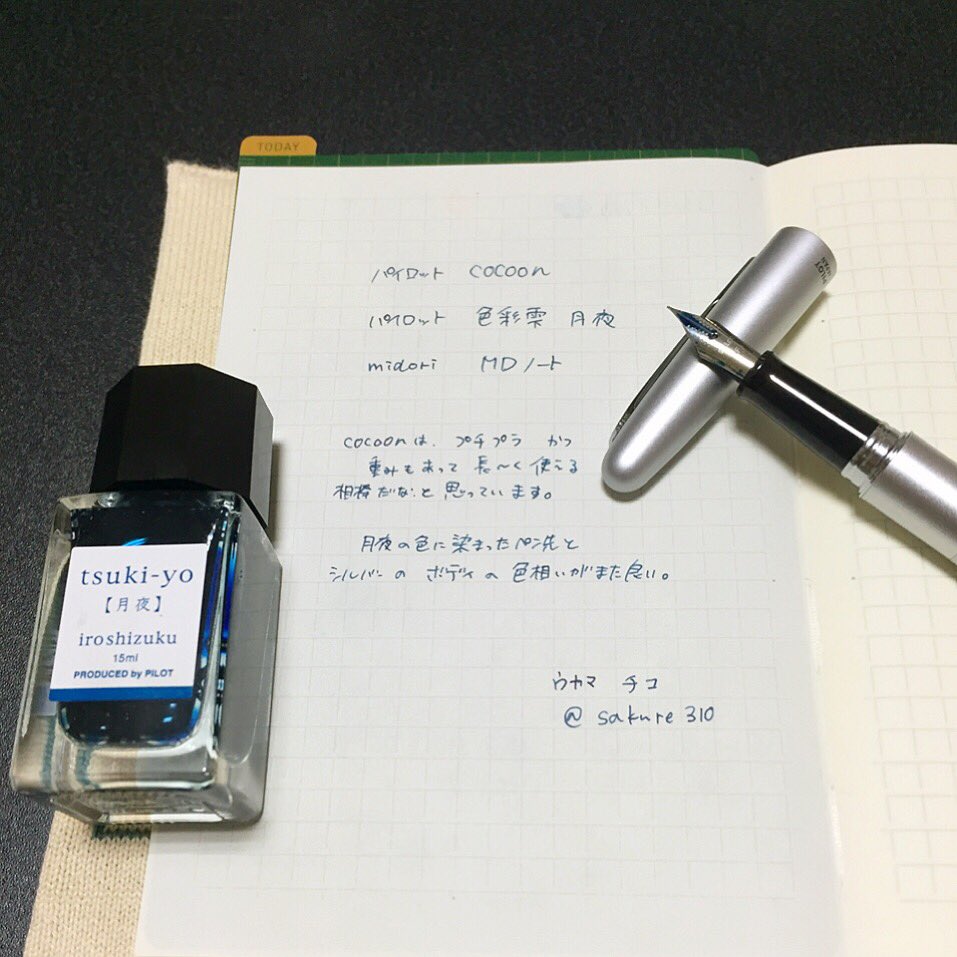 TODAY
パイロット cocoon
パイロット 色彩雫 月夜
midori MDノート
cocoonは、プチプラ かつ
重みもあって 長〜く使える
相棒だなと思っています。
月夜の色に染まったペン先と
シルバーの ボディの 色相いがまた良い。
ウカマ チコ
@sakure310
PILOT
JAPAN
tsuki-yo
【月夜】
iroshizuku
15ml
PRODUCED by PILOT